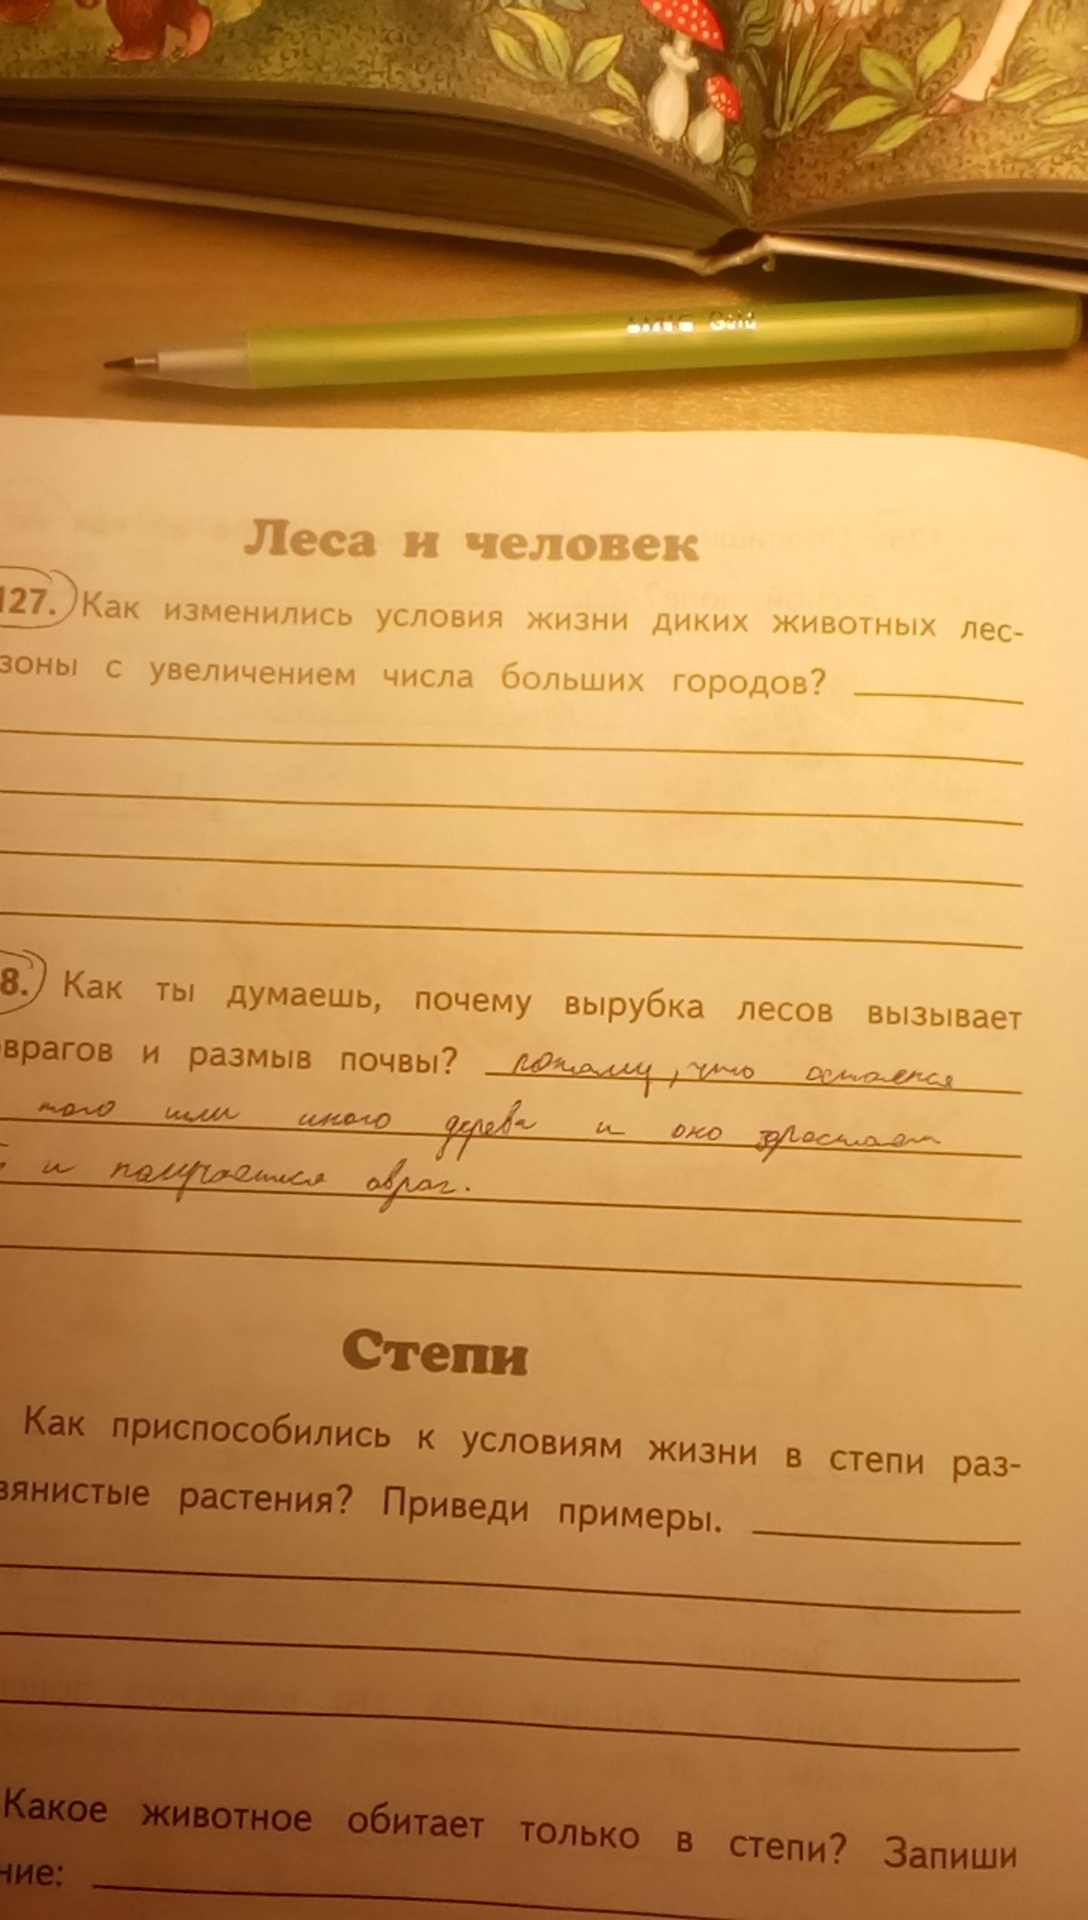 Gold
Леса и человек
127. Как изменились условия жизни диких животных лес-
зоны с увеличением числа больших городов?
8. Как ты думаешь, почему вырубка лесов вызывает
оврагов и размыв почвы? потому, что остаётся
того или иного дерева и оно
и получается овраг.
Степи
Как приспособились к условиям жизни в степи раз-
вянистые растения? Приведи примеры.
Какое животное обитает только в степи? Запиши
ние: